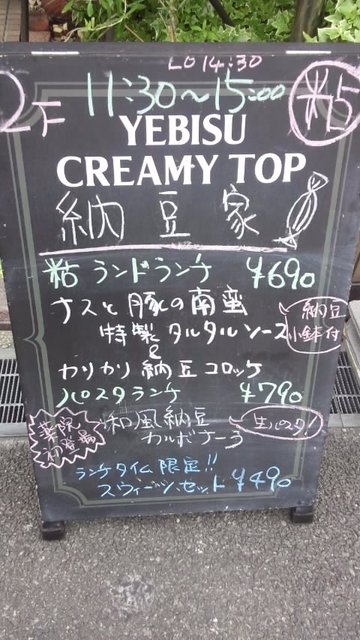 LO 14:30
2F 11:30〜15:00 粘
YEBISU
CREAMY TOP
納豆家
粘ランドランチ ¥690
ナスと豚の南蛮
特製タルタルソース
納豆
小鉢付
&
カリカリ納豆コロッケ
パスタランチ ¥790
薬院
初登場
和風納豆
カルボナーラ
生パスタ!
ランチタイム限定!!
スウィーツセット ¥490